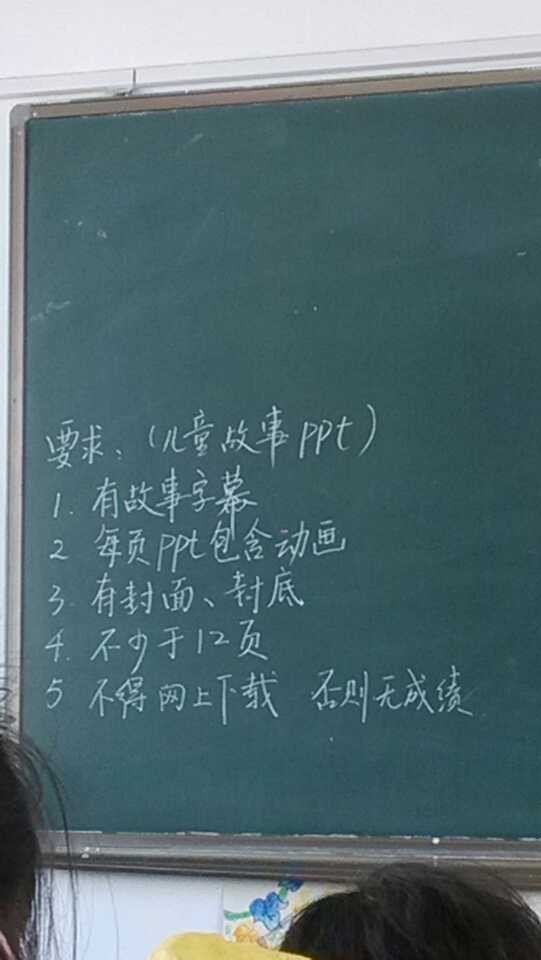 要求：（儿童故事ppt）
1. 有故事字幕
2 每页ppt包含动画
3. 有封面、封底
4. 不少于12页
5 不得网上下载 否则无成绩